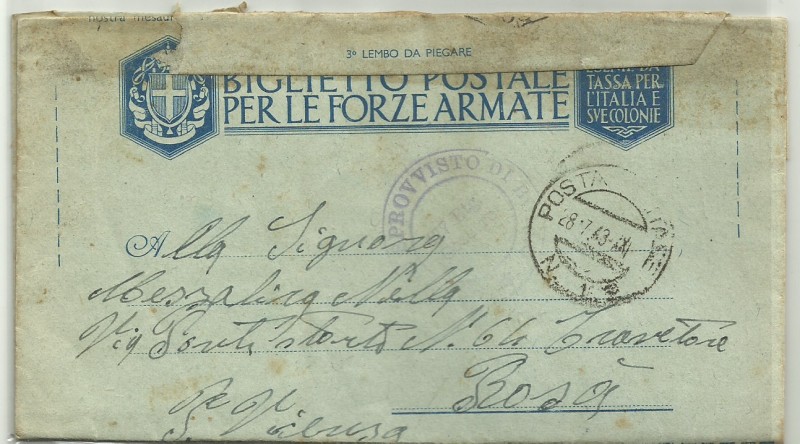 nostra
3° LEMBO DA PIEGARE
BIGLIETTO POSTALE
PER LE FORZE ARMATE
TASSA PER
L'ITALIA E
SVE COLONIE
PROVVISTO DI
POSTA
28.7.43
N.
Alla Signora
Mezzalira Nella
Via N. 64 Travettore
Rosà
P. Vicenza